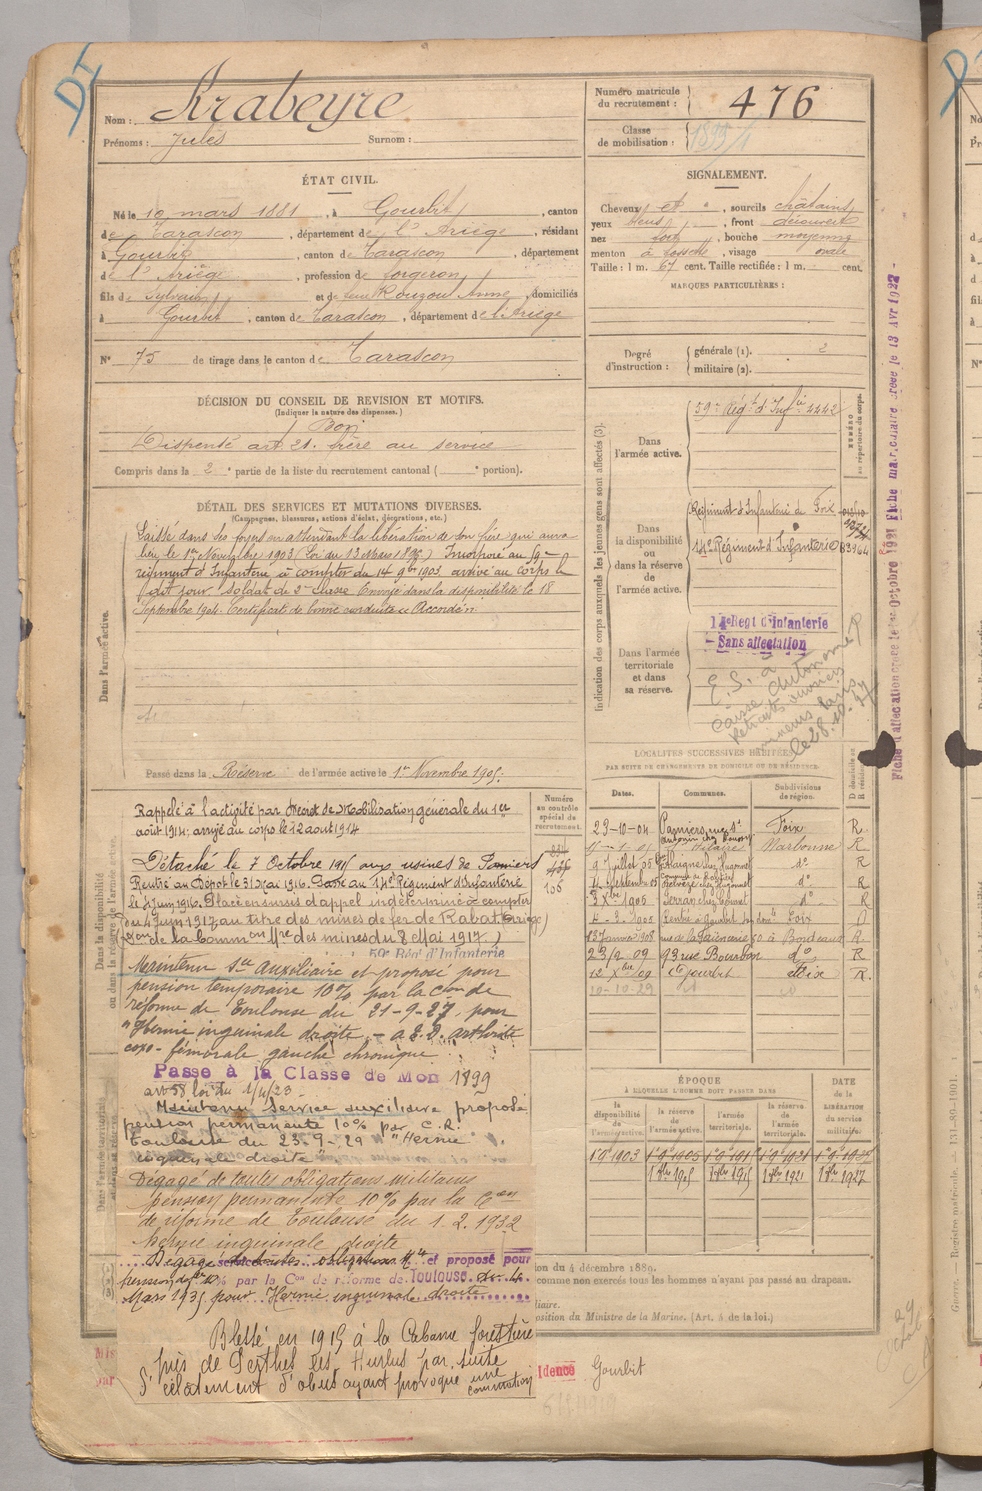 DI
Nom : Arabeyre
Prénoms : Jules Surnom :
Numéro matricule du recrutement : 476
Classe de mobilisation : 1899/1
ÉTAT CIVIL.
Né le 10 mars 1881, à Gourbit, canton
de Tarascon, département de l'Ariège, résidant
à Gourbit, canton de Tarascon, département
de l'Ariège, profession de forgeron,
fils de Sylvain et de feue Rouzou Anne, domiciliés
à Gourbit, canton de Tarascon, département de l'Ariège
N° 75 de tirage dans le canton de Tarascon
SIGNALEMENT.
Cheveux et, sourcils châtains
yeux bleus, front découvert
nez fort, bouche moyenne
menton à fossette, visage ovale
Taille : 1 m. 67 cent. Taille rectifiée : 1 m. cent.
MARQUES PARTICULIÈRES :
Degré d'instruction : générale (1). 2
militaire (2).
DÉCISION DU CONSEIL DE REVISION ET MOTIFS.
(Indiquer la nature des dispenses.)
Bon
Dispensé art. 21. frère au service
Compris dans la 2e partie de la liste du recrutement cantonal ( portion).
DÉTAIL DES SERVICES ET MUTATIONS DIVERSES.
(Campagnes, blessures, actions d'éclat, décorations, etc.)
Dans l'armée active.
Laissé dans ses foyers en attendant la libération de son frère qui aura
lieu le 1er Novembre 1903 (Loi du 13 Mars 1896). Incorporé au 59e
régiment d'Infanterie à compter du 14 9bre 1903, arrivé au corps le
dit jour soldat de 2e classe Envoyé dans la disponibilité le 18
Septembre 1904. Certificat de bonne conduite « Accordé ».
Passé dans la Réserve de l'armée active le 1er Novembre 1905.
Indication des corps auxquels les jeunes gens sont affectés (3).
NUMÉRO au répertoire du corps.
Dans l'armée active.
59e Régt d'Infie 4442
Dans la disponibilité ou dans la réserve de l'armée active.
Régiment d'Infanterie de Foix
14e Régiment d'Infanterie
Dans l'armée territoriale et dans sa réserve.
14e Regt d'Infanterie
Sans affectation
E.S. à
Caisse Autonome R
Retraites ouvriers
mineurs Paris
le 28.10.37
Fiche d'affectation créée le 1er Octobre 1921 Fiche matriculaire créée le 13 Avr 1922
Dans la disponibilité ou dans la réserve de l'armée active.
Numéro au contrôle spécial du recrutement.
106
Rappelé à l'activité par Décret de Mobilisation générale du 1er
août 1914; arrivé au corps le 12 août 1914
Détaché le 7 Octobre 1915 aux usines de Pamiers
Rentré au Dépôt le 31 Mai 1916. Passé au 14e Régiment d'Infanterie
le 4 Juin 1916. Placé en sursis d'appel indéterminé à compter
du 4 Juin 1917 au titre des mines de fer de Rabat (Ariège)
(Don de la Commion Mre des mines du 8 Mai 1917.)
59e Régt d'Infanterie
Maintenu Sce auxiliaire et proposé pour
pension temporaire 10% par la Con de
réforme de Toulouse du 21-9-27, pour
"Hernie inguinale droite. - arthrite
coxo-fémorale gauche chronique"
Passé à la Classe de Mon 1899
art 58 loi du 1/4/23
Maintenu Service auxiliaire proposé
pension permanente 10% par C.R.
Toulouse du 23-9-29 "Hernie
inguinale droite"
Dégagé de toutes obligations militaires
pension permanente 10% par la Con
de réforme de Toulouse du 1.2.1932
hernie inguinale droite
Dégagé de toutes obligations Mres et proposé pour
pension 10% par la Con de réforme de Toulouse du 4
Mars 1935 pour Hernie inguinale droite
Blessé en 1915 à la Cabane forestière
près de Perthes les Hurlus par suite
d'éclatement d'obus ayant provoqué une
commotion
LOCALITÉS SUCCESSIVES HABITÉES
PAR SUITE DE CHANGEMENTS DE DOMICILE OU DE RÉSIDENCE.
Dates. Communes. Subdivisions de région. D domicile ou R résidence
23-10-04 Pamiers, rue St Antonin Foix R
Narbonne R
9 Juillet 05 do R
4 Septembre 05 do R
3 Xbre 1905 do
4-2-1906 Rentré à Gourbit Foix D
13 Janvier 1908 rue de la faïencerie 50 à Bordeaux R
23/2 09 93 rue Bourbon do R
12 Xbre 09 Gourbit Foix R.
20-10-29 id id
ÉPOQUE
À LAQUELLE L'HOMME DOIT PASSER DANS
la disponibilité de l'armée active. la réserve de l'armée active. l'armée territoriale. la réserve de l'armée territoriale.
DATE DE LA LIBÉRATION du service militaire.
1 9 1903
1 9bre 1905 1 9bre 1915 1 9bre 1921 1 8bre 1927
ion du 4 décembre 1889.
comme non exercés tous les hommes n'ayant pas passé au drapeau.
liaire.
position du Ministre de la Marine. (Art. 4 de la loi.)
idence Gourbit
Guerre. Registre matricule. — 131-89-1901.